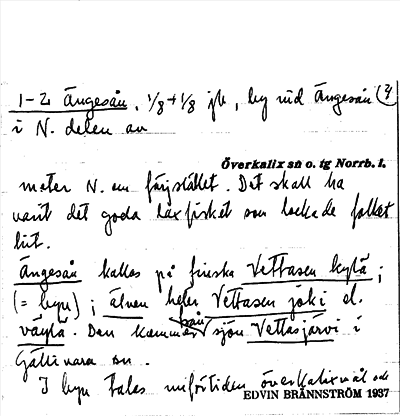 1-2 Ängesån, 1/8+1/8 jb, by vid Ängesån (4
i N. delen av
Överkalix sn o. tg Norrb. l.
meter N. om färjstället. Det skall ha
varit det goda laxfisket som lockade folket
hit.
Ängesån kallas på finska Vettasen kylä;
(= byn); älven heter Vettasen joki el.
väylä. Den kommer från sjön Vettasjärvi i
Gällivara sn.
I byn talas nuförtiden överkalixmål och
EDVIN BRÄNNSTRÖM 1937